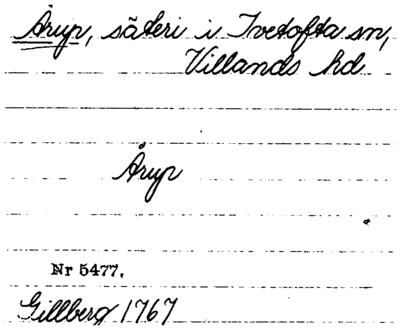 Årup, säteri i Ivetofta sn,
Villands hd
Årup
Nr 5477.
Gillberg 1767